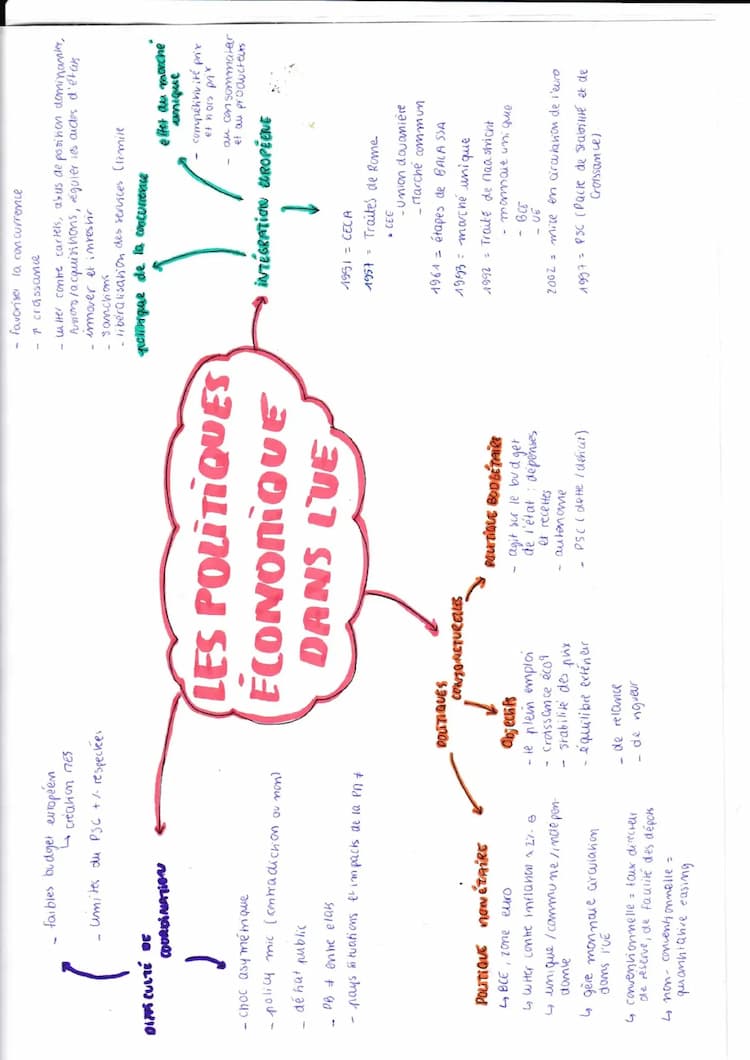 LES POLITIQUES
ÉCONOMIQUE
DANS L'UE
DIFFICULTÉ DE
COORDINATION
- faibles budget européen
↳ création MES
- limites du PSC +/- respectées
- choc asymétrique
- policy mic (contradiction ou non)
- débat public
- PB ≠ entre etats
- pays situations et impacts de la PM ≠
INTÉGRATION EUROPÉENE
politique de la concurrence
- favoriser la concurrence
- ↑ croissance
- lutter contre cartels, abus de position dominante,
fusions/acquisitions, réguler les aides d'états
- innover et investir
- sanctions
- libéralisation des services (limite
effet du marché
unique
- compétitivité prix
et hors prix
- au consommateur
et au producteurs
1951 = CECA
1957 = Traités de Rome
• CEE
- Union douanière
- Marché commun
1961 = étapes de BALASSA
1993 = marché unique
1992 = Traité de Maastricht
- monnaie unique
- BCE
- UE
2002 = mise en circulation de l'euro
1997 = PSC (Pacte de Stabilité et de
Croissance)
POLITIQUES
CONJONCTURELLES
POLITIQUE MONÉTAIRE
↳ BCE, zone euro
↳ lutter contre inflation ≈ 2%
↳ unique/commune/indépen-
dante
↳ gère monnaie circulation
dans l'UE
↳ conventionnelle = taux directeur
de réserve, de facilité des dépots
↳ non-conventionnelle =
quantitative easing
Objectifs
- le plein emploi
- croissance écoq
- stabilité des prix
- équilibre extérieur
- de relance
- de rigueur
POLITIQUE BUDGÉTAIRE
- agit sur le budget
de l'état : dépenses
et recettes
- autonome
- PSC (dette/déficit)